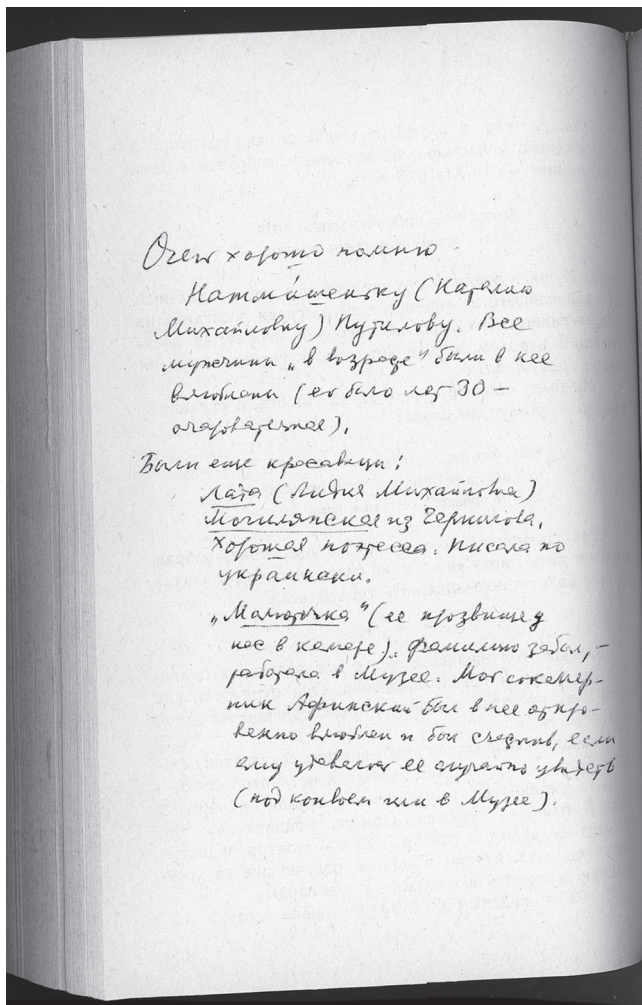 Очень хорошо помню
Наташеньку (Наталию
Михайловну) Путилову. Все
мужчины „в возрасте“ были в нее
влюблены (ей было лет 30 —
очаровательная).
Были еще красавицы:
Лада (Лидия Михайловна)
Могилянская из Чернигова.
Хорошая поэтесса. Писала по
украински.
„Малюточка“ (ее прозвище у
нас в камере). Фамилию забыл, –
работала в Музее. Мой сокамер-
ник Афинский был в нее откро-
венно влюблен и был счастлив, если
ему удавалось ее случайно увидеть
(под конвоем или в Музее).